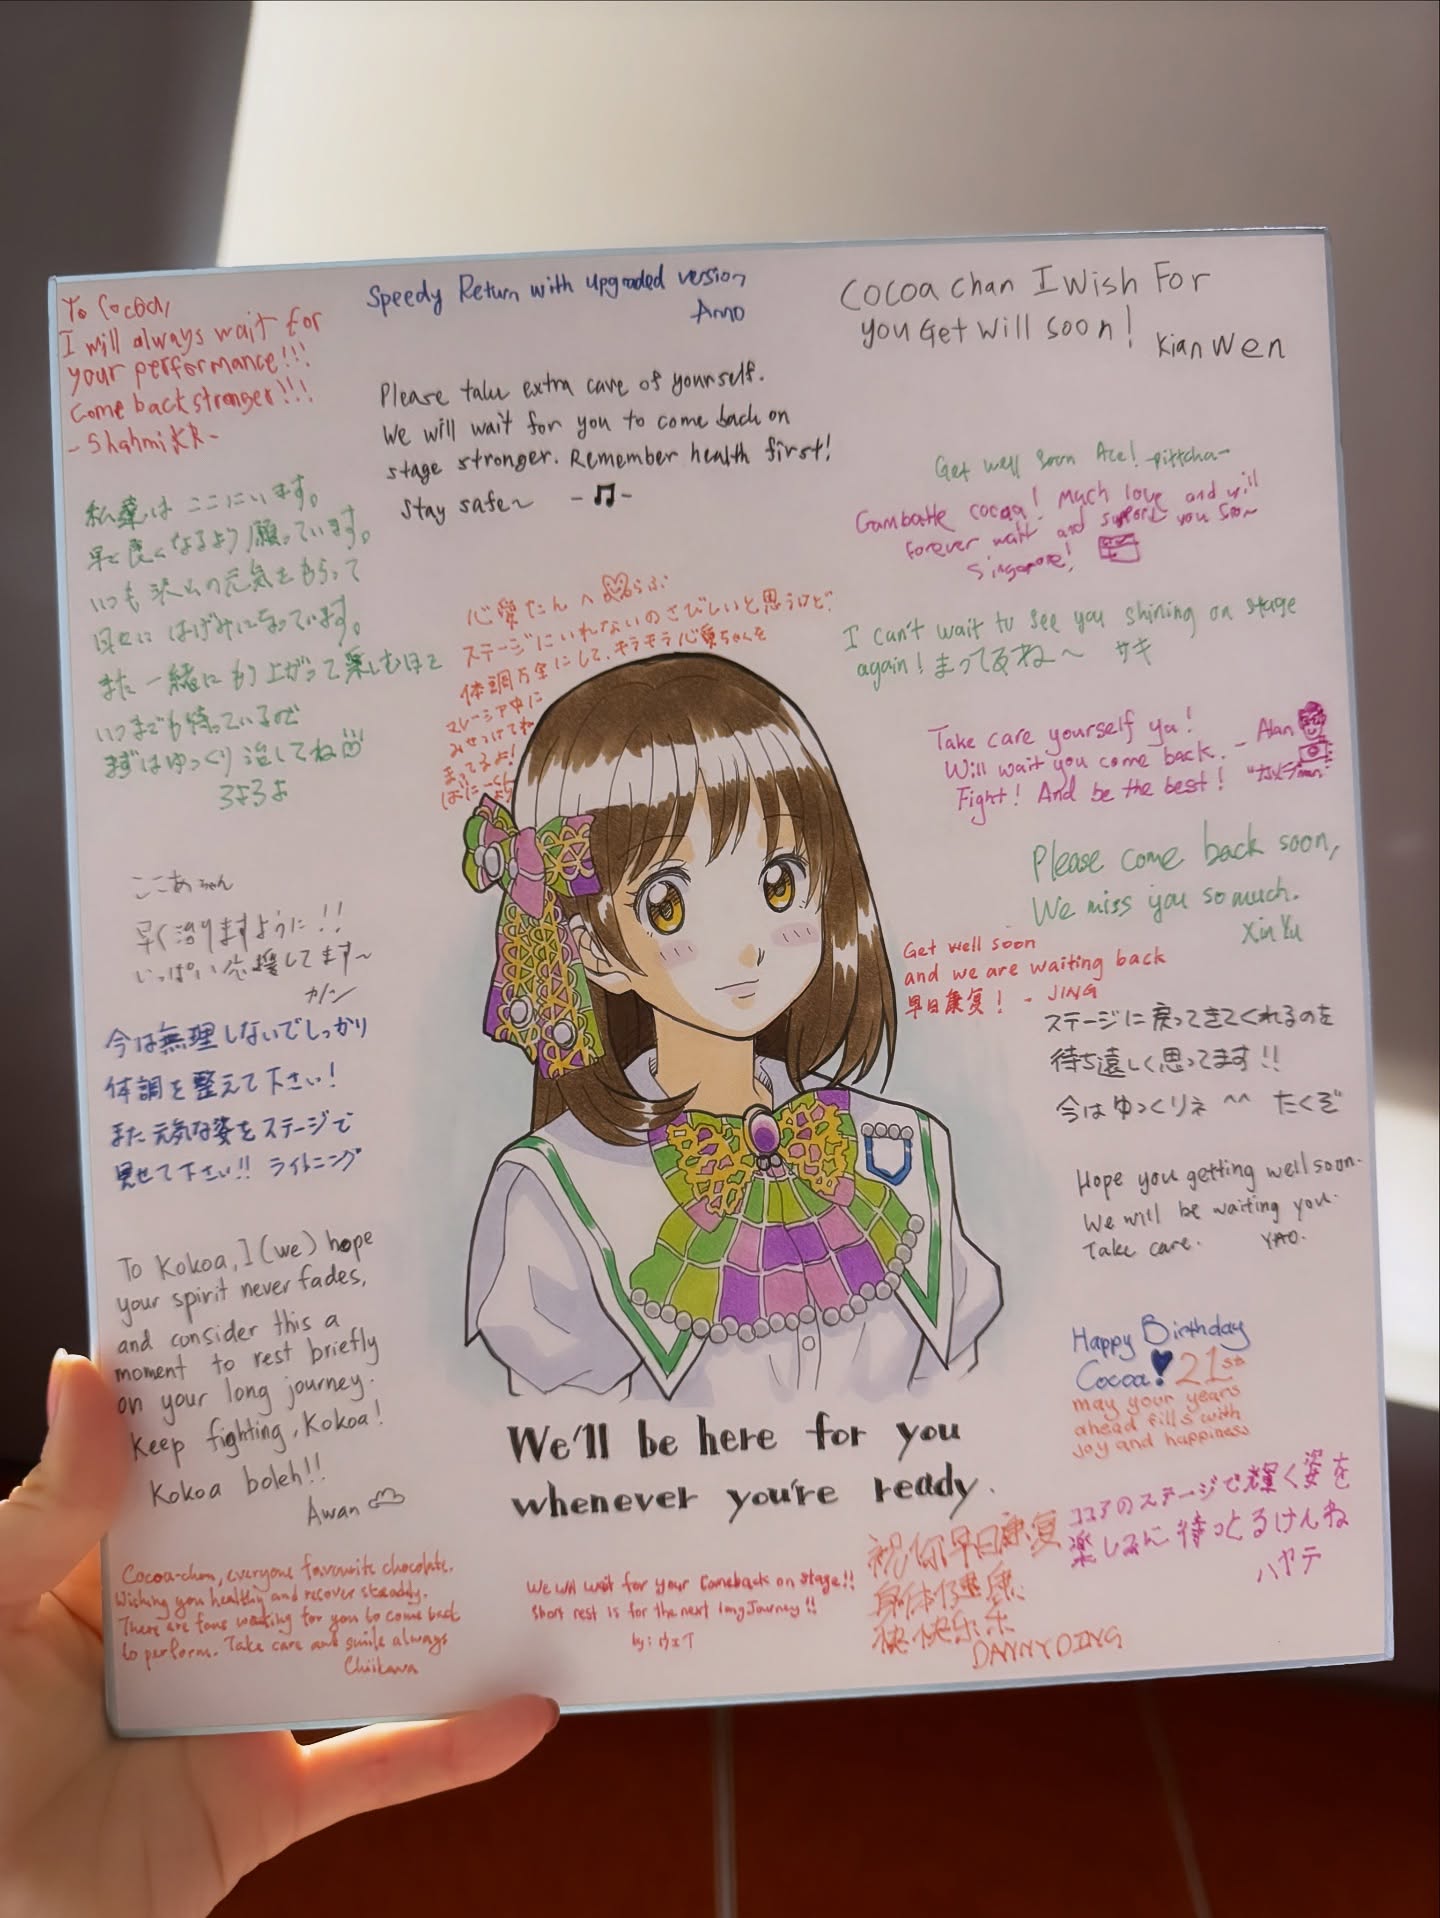 To Cocoa,
I will always wait for
your performance!!!
Come back stronger!!!
-Shahmi KR-
Speedy Return with upgraded version
Anno
Please take extra care of yourself.
We will wait for you to come back on
stage stronger. Remember health first!
Stay safe~ -♫-
Cocoa chan I Wish For
you Get Will Soon!
Kian Wen
Get well soon Ace! -pittcha-
Gambatte cocoa! Much love and will
forever wait and support you soon
Singapore!
私達は ここにいます。
早く良くなるよう願っています。
いつも 沢山の元気をもらって
日々に はげみになっています。
また 一緒に もり上がって楽しむまで
いつまでも待っているので
まずはゆっくり治してね
ろよろよ
心愛たんへ らぶ
ステージにいれないのさびしいと思うけど、
体調万全にして、キラキラ心愛ちゃんを
マレーシア中に
みせつけてね
まってるよ!
I can't wait to see you shining on stage
again! まってるね~ サキ
Take care yourself ya!
Will wait you come back. - Alan
Fight! And be the best! "カメラman"
Please come back soon,
We miss you so much.
Xin Yu
ここあちゃん
早く治りますように!!
いっぱい応援してます~
カノン
Get well soon
and we are waiting back
早日康复! - JING
ステージに戻ってきてくれるのを
待ち遠しく思ってます!!
今は ゆっくりネ ^^ たくぞ
今は無理しないでしっかり
体調を整えて下さい!
また元気な姿をステージで
見せて下さい!! ライトニング
Hope you getting well soon.
We will be waiting you.
Take care. YAO.
To Kokoa, I (we) hope
your spirit never fades,
and consider this a
moment to rest briefly
on your long journey.
Keep fighting, Kokoa!
Kokoa boleh!!
Awan
Happy Birthday
Cocoa! 21st
may your years
ahead fills with
joy and happiness
We'll be here for you
whenever you're ready.
ココアのステージで輝く姿を
楽しみに待っとるけんね
ハヤテ
祝你早日康复
身体健康
快快乐乐
DANNY DING
Cocoa-chan, everyone favourite chocolate.
Wishing you healthy and recover steadily.
There are fans waiting for you to come back
to perform. Take care and smile always
Chiikawa
We will wait for your Comeback on stage!!
Short rest is for the next long Journey!!
by: ウェイ